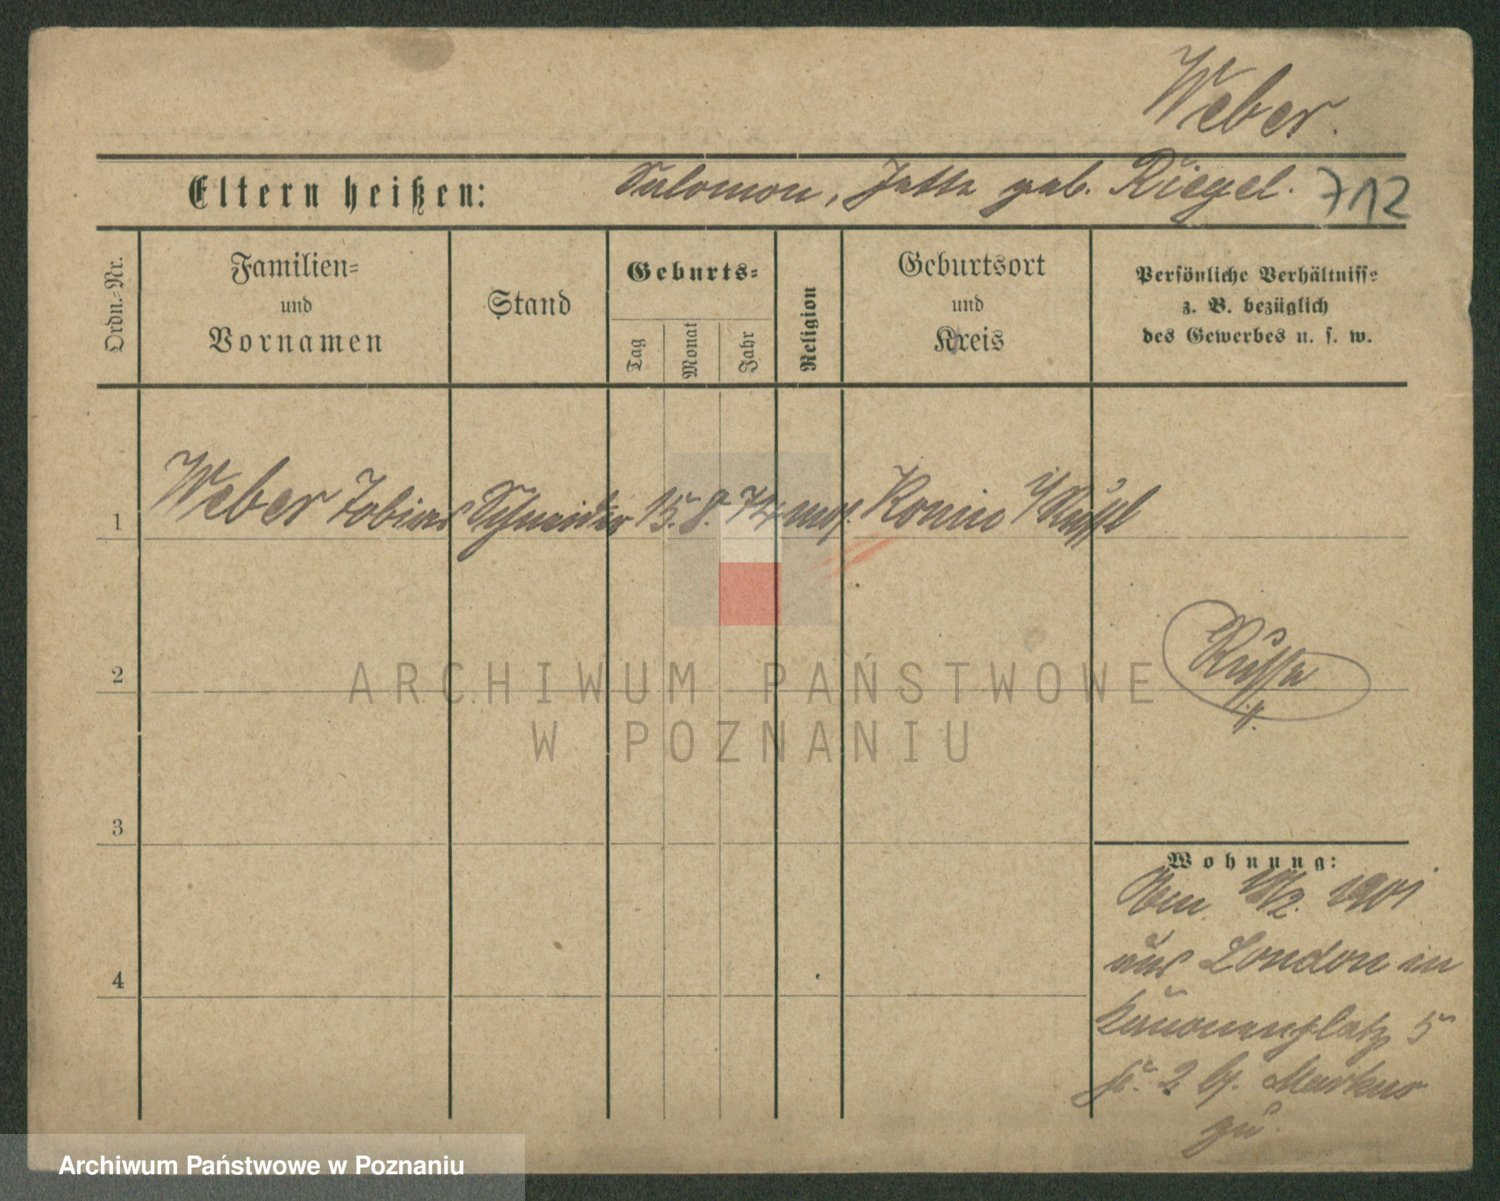 Weber.
Eltern heißen: Salomon, Jette geb. Riegel. 712
Ordn.-Nr.
Familien-
und
Vornamen
Stand
Geburts-
Tag
Monat
Jahr
Religion
Geburtsort
und
Kreis
Persönliche Verhältnisse
z. B. bezüglich
des Gewerbes u. s. w.
1 Weber Tobias Schneider 15. 8. 74 mos. Konin i/Russl
2
Russe
3
4
Wohnung:
1901
aus London in
Kanonenplatz 5
b. Markus
zu.
ARCHIWUM PAŃSTWOWE
W POZNANIU
Archiwum Państwowe w Poznaniu